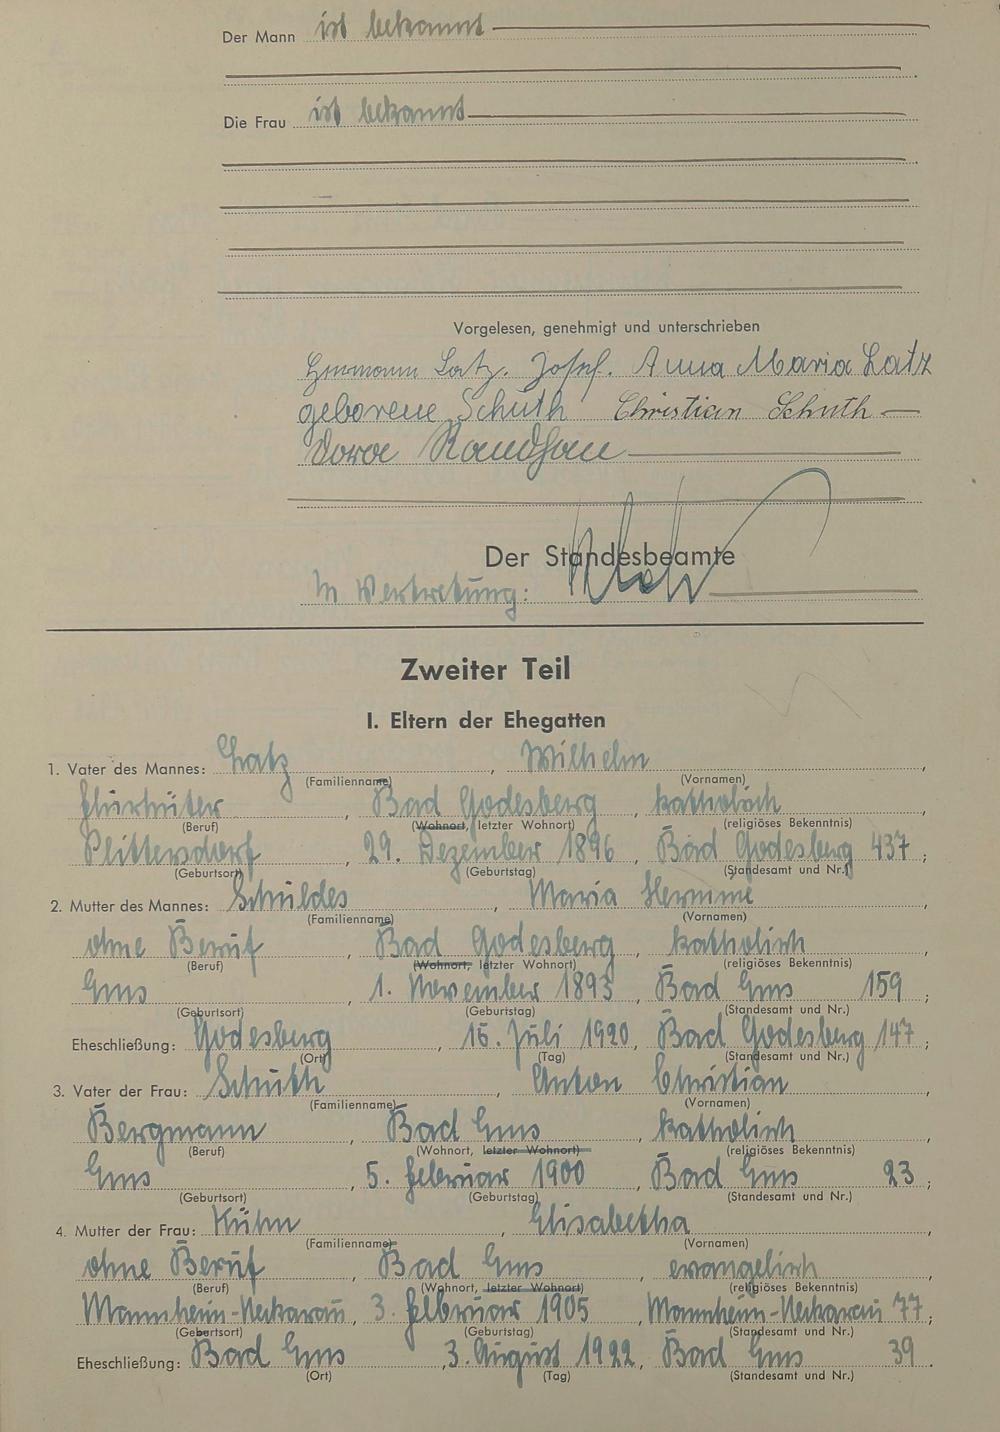 Der Mann ist bekannt
Die Frau ist bekannt
Vorgelesen, genehmigt und unterschrieben
Hermann Latz. Josef. Anna Maria Latz
geborene Schuth Christian Schuth
Der Standesbeamte
In Vertretung:
Zweiter Teil
I. Eltern der Ehegatten
1. Vater des Mannes: Latz, Wilhelm,
(Familienname) (Vornamen)
Flurhüter, Bad Godesberg, katholisch
(Beruf) (Wohnort, letzter Wohnort) (religiöses Bekenntnis)
Plittersdorf, 29. Dezember 1896, Bad Godesberg 437;
(Geburtsort) (Geburtstag) (Standesamt und Nr.)
2. Mutter des Mannes: Schuldes, Maria,
(Familienname) (Vornamen)
ohne Beruf, Bad Godesberg, katholisch
(Beruf) (Wohnort, letzter Wohnort) (religiöses Bekenntnis)
Ems, 1. November 1893, Bad Ems 159;
(Geburtsort) (Geburtstag) (Standesamt und Nr.)
Eheschließung: Godesberg, Juli 1920, Bad Godesberg 147;
(Ort) (Tag) (Standesamt und Nr.)
3. Vater der Frau: Schuth, Anton Christian,
(Familienname) (Vornamen)
Bergmann, Bad Ems, katholisch,
(Beruf) (Wohnort, letzter Wohnort) (religiöses Bekenntnis)
Ems, 5. Februar 1900, Bad Ems 23;
(Geburtsort) (Geburtstag) (Standesamt und Nr.)
4. Mutter der Frau: Kühn, Elisabetha,
(Familienname) (Vornamen)
ohne Beruf, Bad Ems, evangelisch,
(Beruf) (Wohnort, letzter Wohnort) (religiöses Bekenntnis)
Mannheim-Neckarau, 3. Februar 1905, Mannheim-Neckarau 77;
(Geburtsort) (Geburtstag) (Standesamt und Nr.)
Eheschließung: Bad Ems, 3. August 1922, Bad Ems 39.
(Ort) (Tag) (Standesamt und Nr.)